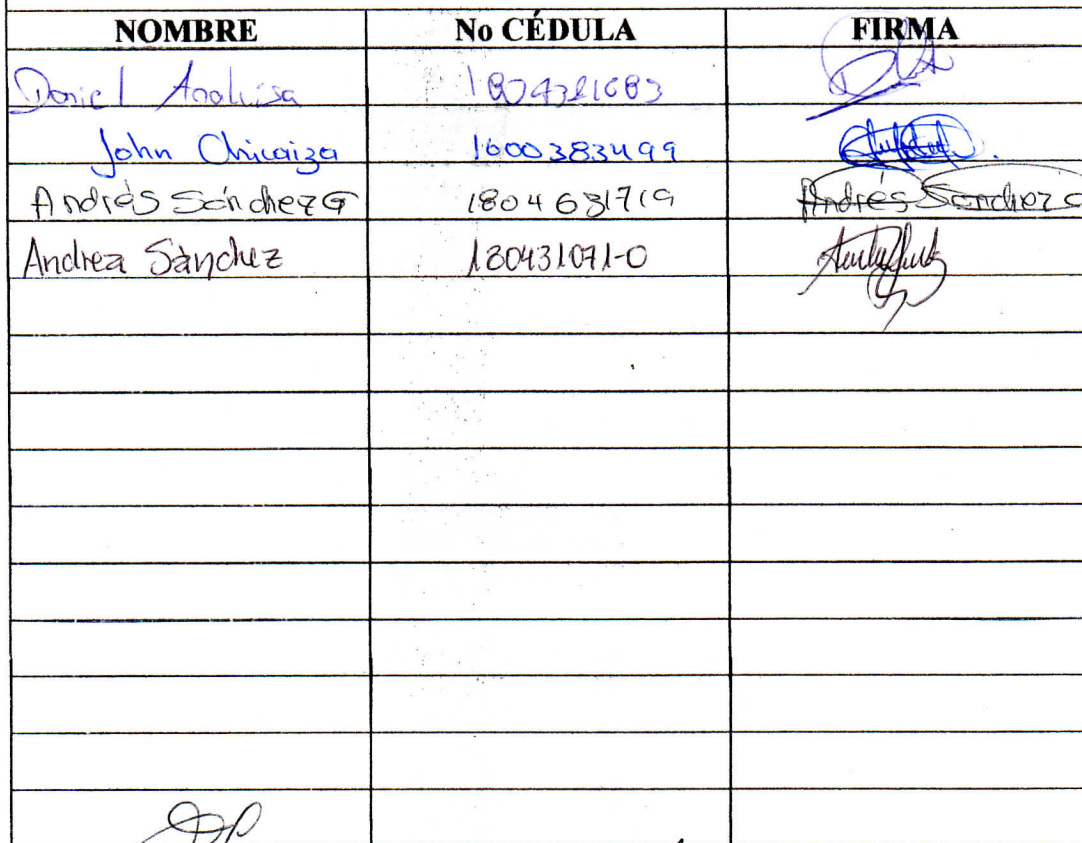 NOMBRE No CÉDULA FIRMA
Daniel Analuisa
John Chicaiza 1600383499
Andrés Sánchez G 1804631719 Andrés Sánchez G
Andrea Sánchez 180431071-0